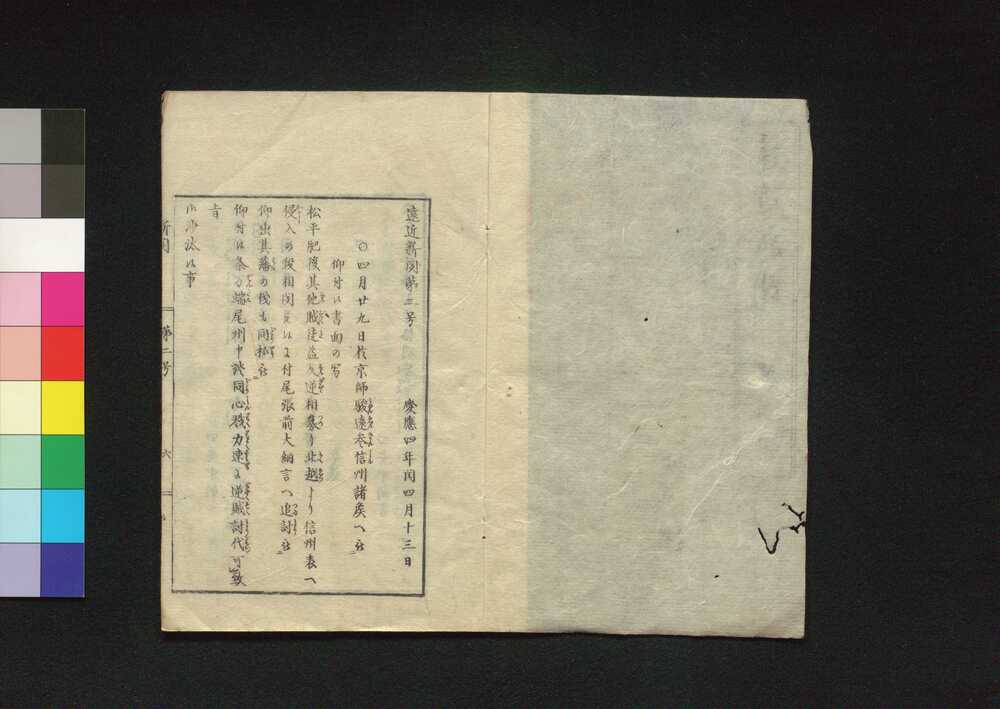 遠近新聞第二号 慶應四年閏四月十三日
○四月廿九日於京師駿遠参信州諸矦へ被
仰付候書面の写
松平肥後其他賊徒益反逆相募り北越より信州表へ
侵入の候相聞候に付尾張前大納言へ追討被
仰出其藩の儀も同様被
仰付候条万端尾州申談同心戮力速に逆賊討伐可致
旨
御沙汰候事
新聞 第二号 六